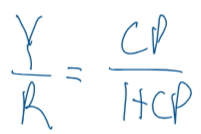 Y/R = CP/1+CP